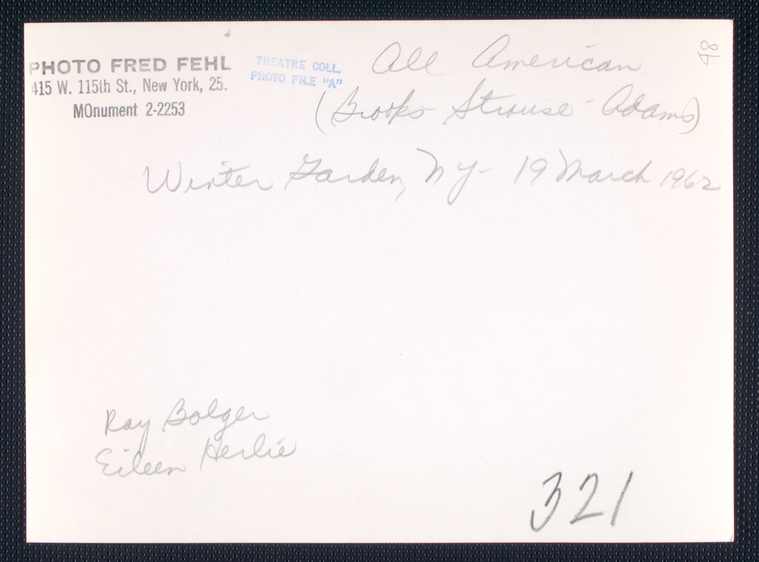 PHOTO FRED FEHL
415 W. 115th St., New York, 25.
MOnument 2-2253
THEATRE COLL.
PHOTO FILE "A"
All American
(Brooks-Strouse-Adams)
48
Winter Garden, NY - 19 March 1962
Ray Bolger
Eileen Herlie
321